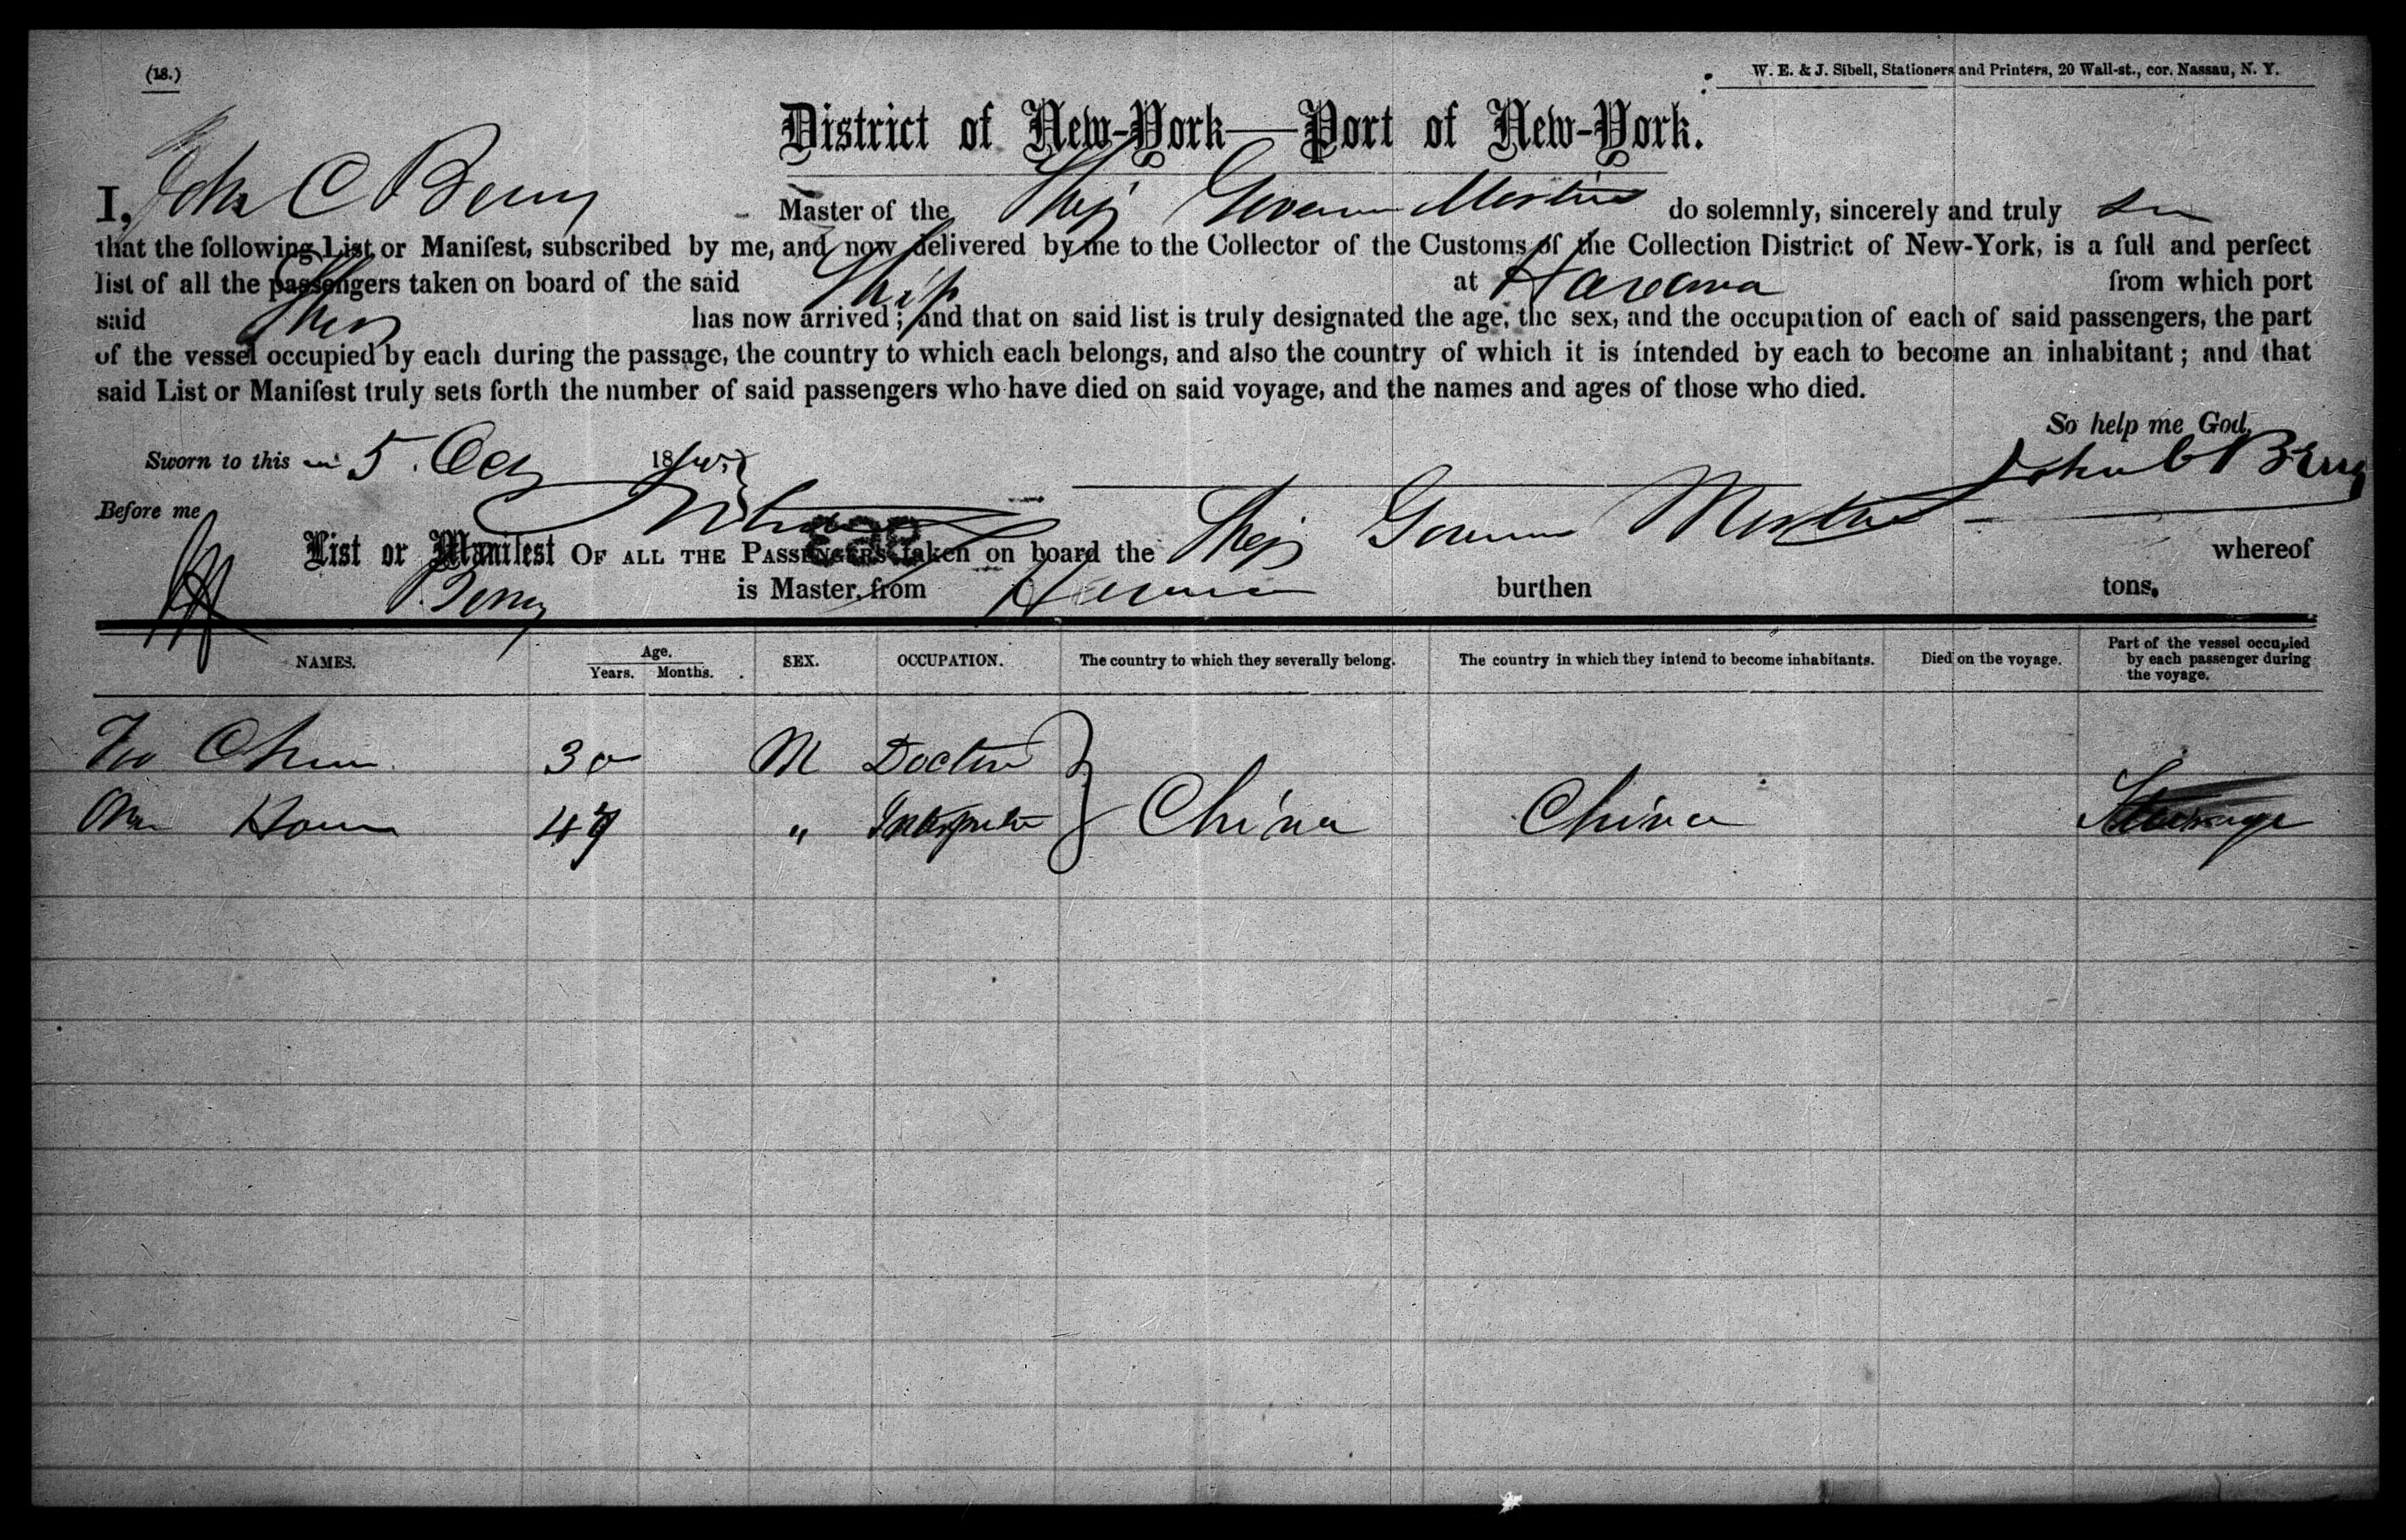 (18.)
W. E. & J. Sibell, Stationers and Printers, 20 Wall-st., cor. Nassau, N. Y.
District of New-York—Port of New-York.
I, John C Berry Master of the Ship Governor Morton do solemnly, sincerely and truly
that the following List or Manifest, subscribed by me, and now delivered by me to the Collector of the Customs of the Collection District of New-York, is a full and perfect
list of all the passengers taken on board of the said Ship at Havana from which port
said Ship has now arrived; and that on said list is truly designated the age, the sex, and the occupation of each of said passengers, the part
of the vessel occupied by each during the passage, the country to which each belongs, and also the country of which it is intended by each to become an inhabitant; and that
said List or Manifest truly sets forth the number of said passengers who have died on said voyage, and the names and ages of those who died.
So help me God,
Sworn to this 5. Oct 18
John C Berry
Before me
List or Manifest OF ALL THE PASSENGERS taken on board the Ship Governor Morton whereof
Berry is Master, from Havana burthen tons.
NAMES. Age. Years. Months. SEX. OCCUPATION. The country to which they severally belong. The country in which they intend to become inhabitants. Died on the voyage. Part of the vessel occupied by each passenger during the voyage.
Chun 30 M Doctor
47 " Interpreter China China Steerage